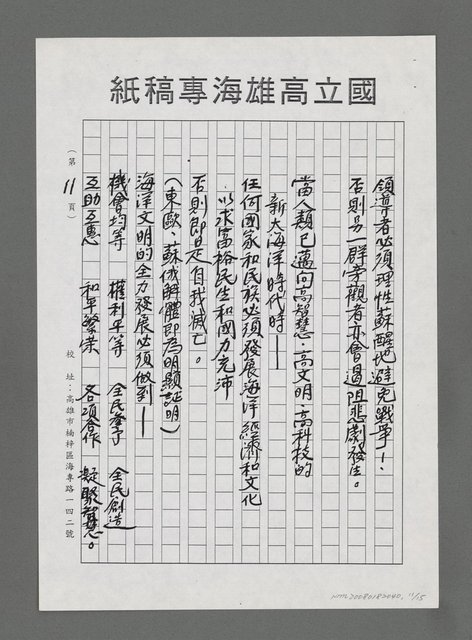 國立高雄海專稿紙
領導者必須理性蘇醒地避免戰爭！
否則另一群旁觀者亦會遏阻悲劇發生。
當人類已邁向高智慧．高文明．高科技的
新大海洋時代時——
任何國家和民族必須發展海洋經濟和文化
以求富裕民生和國力充沛
否則即是自我滅亡。
（東歐、蘇俄解體即為明顯証明）
海洋文明的全力發展必須做到——
機會均等　權利平等　全民參予　全民創造
互助互惠　和平繁榮　各項合作　凝聚智慧。
（第11頁）
校址：高雄市楠梓區海專路一四二號
NML20080182040, 11/15